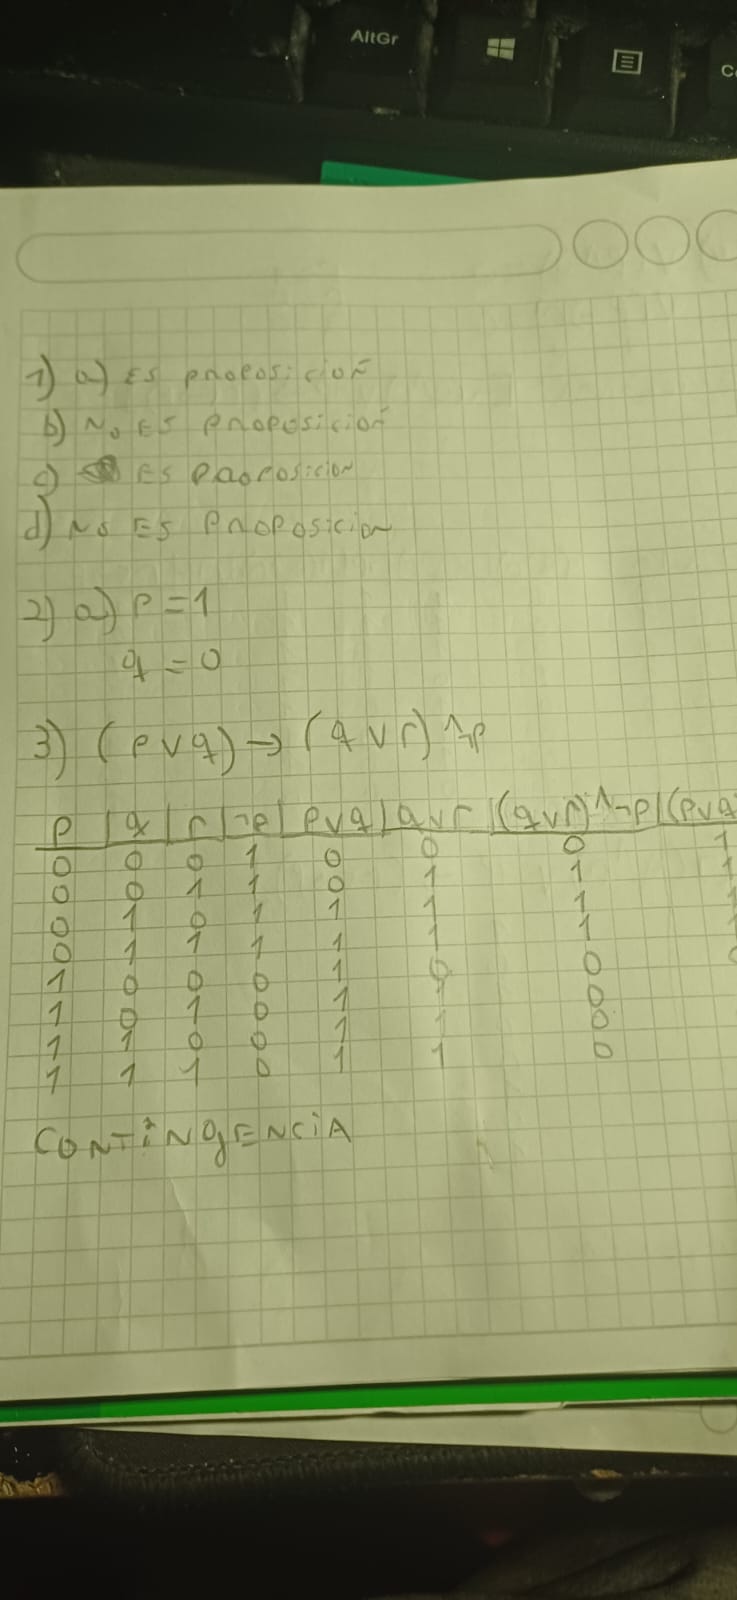 AltGr
1) a) ES PROPOSICION
b) NO ES PROPOSICION
c) ES PROPOSICION
d) NO ES PROPOSICION
2) a) P = 1
q = 0
3) (p ∨ q) → (q ∨ r) ^ ¬p
p | q | r | ¬p | p ∨ q | q ∨ r | (q ∨ r) ^ ¬p | (p ∨ q
0 0 0 1 0 0 0 1
0 0 1 1 0 1 1 1
0 1 0 1 1 1 1 1
0 1 1 1 1 1 1 1
1 0 0 0 1 0 0 0
1 0 1 0 1 1 0
1 1 0 0 1 1 0
1 1 1 0 1 1 0
CONTINGENCIA